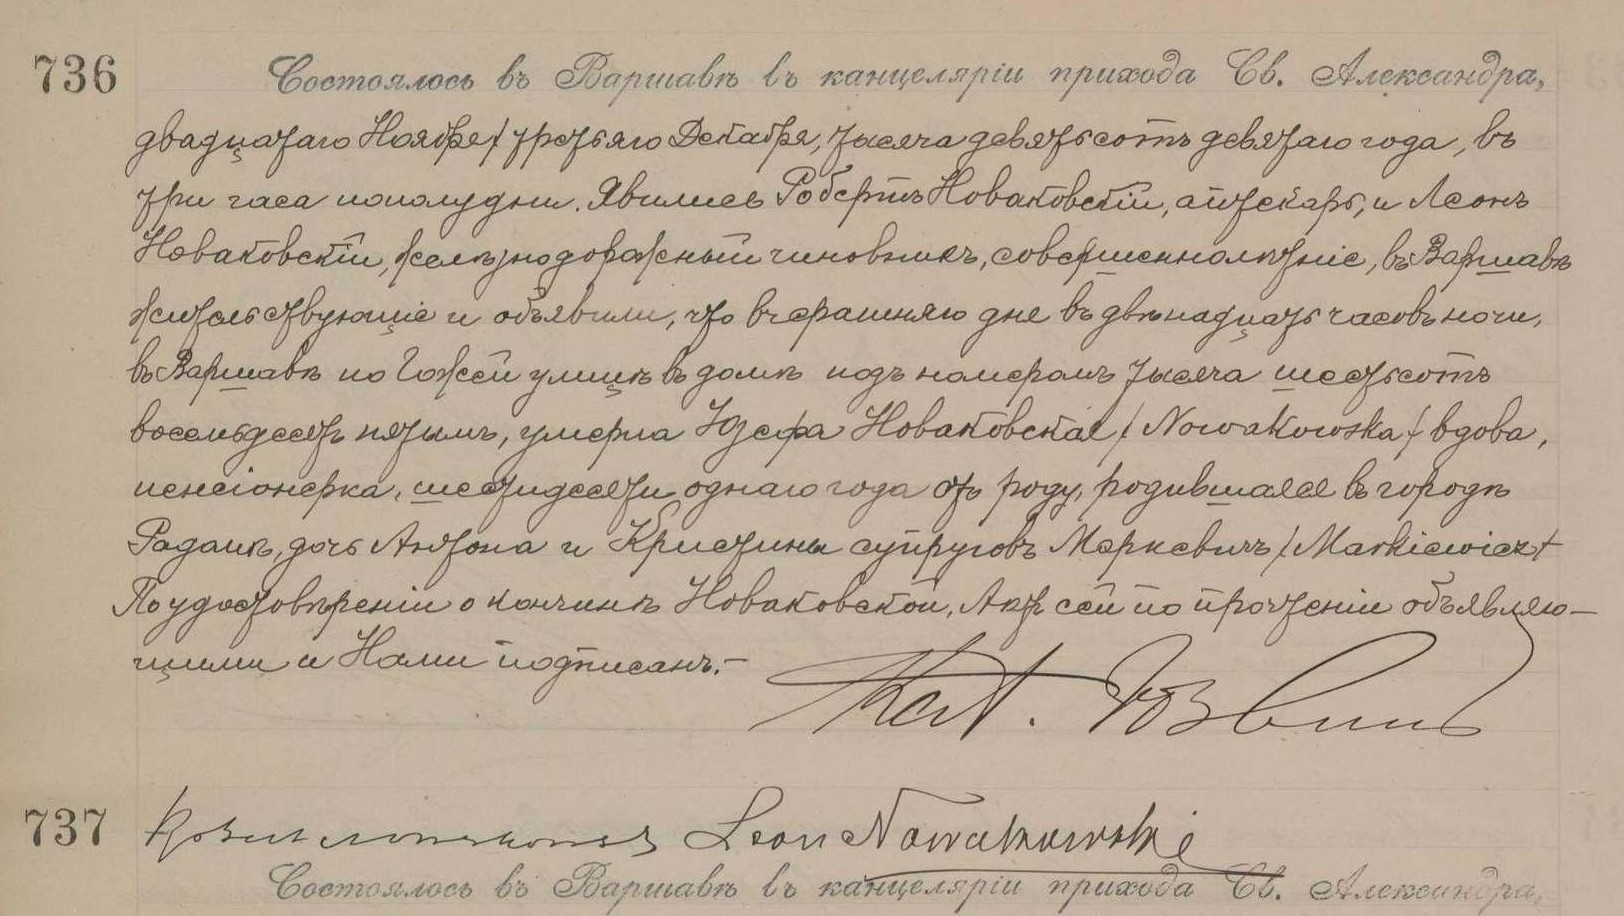 736 Состоялось въ Варшавѣ въ канцеляріи прихода Св. Александра,
двадцатаго Ноября / третьяго Декабря, тысяча девятьсотъ девятаго года, въ
три часа пополудни. Явились Робертъ Новаковскій, аптекарь, и Леонъ
Новаковскій, желѣзнодорожный чиновникъ, совершеннолѣтніе, въ Варшавѣ
жительствующіе и объявили, что вчерашняго дня въ двѣнадцать часовъ ночи,
въ Варшавѣ по Гожей улицѣ въ домѣ подъ номеромъ тысяча шестьсотъ
восемьдесятъ пятымъ, умерла Юзефа Новаковская / Nowakowska / вдова,
пенсіонерка, шестидесяти однаго года отъ роду, родившаяся въ городѣ
Радомѣ, дочь Антона и Кристины супруговъ Маркевичъ / Markiewicz /
По удостовѣреніи о кончинѣ Новаковской, Актъ сей по прочтеніи объявляю-
щими и Нами подписанъ.-
737 Leon Nowakowski
Состоялось въ Варшавѣ въ канцеляріи прихода Св. Александра,